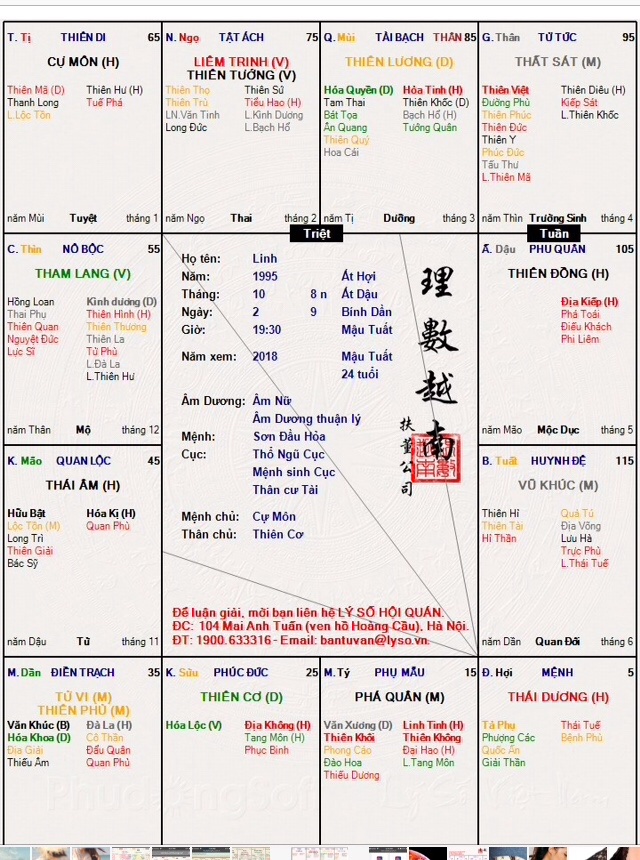 T. Tị THIÊN DI 65
CỰ MÔN (H)
Thiên Mã (D) Thiên Hư (H)
Thanh Long Tuế Phá
L.Lộc Tồn
năm Mùi Tuyệt tháng 1
N. Ngọ TẬT ÁCH 75
LIÊM TRINH (V)
THIÊN TƯỚNG (V)
Thiên Thọ Thiên Sứ
Thiên Trù Tiểu Hao (H)
LN.Văn Tinh L.Kình Dương
Long Đức L.Bạch Hổ
năm Ngọ Thai tháng 2
Q. Mùi TÀI BẠCH THÂN 85
THIÊN LƯƠNG (D)
Hóa Quyền (D) Hỏa Tinh (H)
Tam Thai Thiên Khốc (D)
Bát Tọa Bạch Hổ (H)
Ân Quang Tướng Quân
Thiên Quý
Hoa Cái
năm Tị Dưỡng tháng 3
G. Thân TỬ TỨC 95
THẤT SÁT (M)
Thiên Việt Thiên Diêu (H)
Đường Phù Kiếp Sát
Thiên Phúc L.Thiên Khốc
Thiên Đức
Thiên Y
Phúc Đức
Tấu Thư
L.Thiên Mã
năm Thìn Trường Sinh tháng 4
Triệt Tuần
C. Thìn NÔ BỘC 55
THAM LANG (V)
Hồng Loan Kình dương (D)
Thai Phụ Thiên Hình (H)
Thiên Quan Thiên Thương
Nguyệt Đức Thiên La
Lực Sĩ Tử Phù
L.Đà La
L.Thiên Hư
năm Thân Mộ tháng 12
Họ tên: Linh
Năm: 1995 Ất Hợi
Tháng: 10 8 n Ất Dậu
Ngày: 2 9 Bính Dần
Giờ: 19:30 Mậu Tuất
Năm xem: 2018 Mậu Tuất
24 tuổi
Âm Dương: Âm Nữ
Âm Dương thuận lý
Mệnh: Sơn Đầu Hỏa
Cục: Thổ Ngũ Cục
Mệnh sinh Cục
Thân cư Tài
Mệnh chủ: Cự Môn
Thân chủ: Thiên Cơ
理數越南
扶董公司
Để luận giải, mời bạn liên hệ LÝ SỐ HỘI QUÁN.
ĐC: 104 Mai Anh Tuấn (ven hồ Hoàng Cầu), Hà Nội.
ĐT: 1900.633316 - Email: bantuvan@lyso.vn.
Ấ. Dậu PHU QUÂN 105
THIÊN ĐỒNG (H)
Địa Kiếp (H)
Phá Toái
Điếu Khách
Phi Liêm
năm Mão Mộc Dục tháng 5
K. Mão QUAN LỘC 45
THÁI ÂM (H)
Hữu Bật Hóa Kị (H)
Lộc Tồn (M) Quan Phù
Long Trì
Thiên Giải
Bác Sỹ
năm Dậu Tử tháng 11
B. Tuất HUYNH ĐỆ 115
VŨ KHÚC (M)
Thiên Hỉ Quả Tú
Thiên Tài Địa Võng
Hỉ Thần Lưu Hà
Trực Phù
L.Thái Tuế
năm Dần Quan Đới tháng 6
M. Dần ĐIỀN TRẠCH 35
TỬ VI (M)
THIÊN PHỦ (M)
Văn Khúc (B) Đà La (H)
Hóa Khoa (D) Cô Thần
Địa Giải Đẩu Quân
Thiếu Âm Quan Phủ
K. Sửu PHÚC ĐỨC 25
THIÊN CƠ (D)
Hóa Lộc (V) Địa Không (H)
Tang Môn (H)
Phục Binh
M. Tý PHỤ MẪU 15
PHÁ QUÂN (M)
Văn Xương (D) Linh Tinh (H)
Thiên Khôi Thiên Không
Phong Cáo Đại Hao (H)
Đào Hoa L.Tang Môn
Thiếu Dương
Đ. Hợi MỆNH 5
THÁI DƯƠNG (H)
Tả Phụ Thái Tuế
Phượng Các Bệnh Phù
Quốc Ấn
Giải Thần